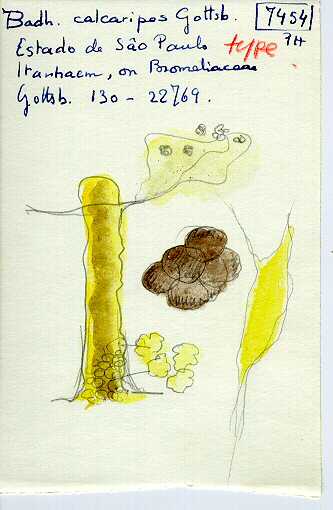 Badh. calcaripes Gottsb. 7454
Estado de São Paulo type
Itanhaem, on Bromeliaceae
Gottsb. 130 - 22769.